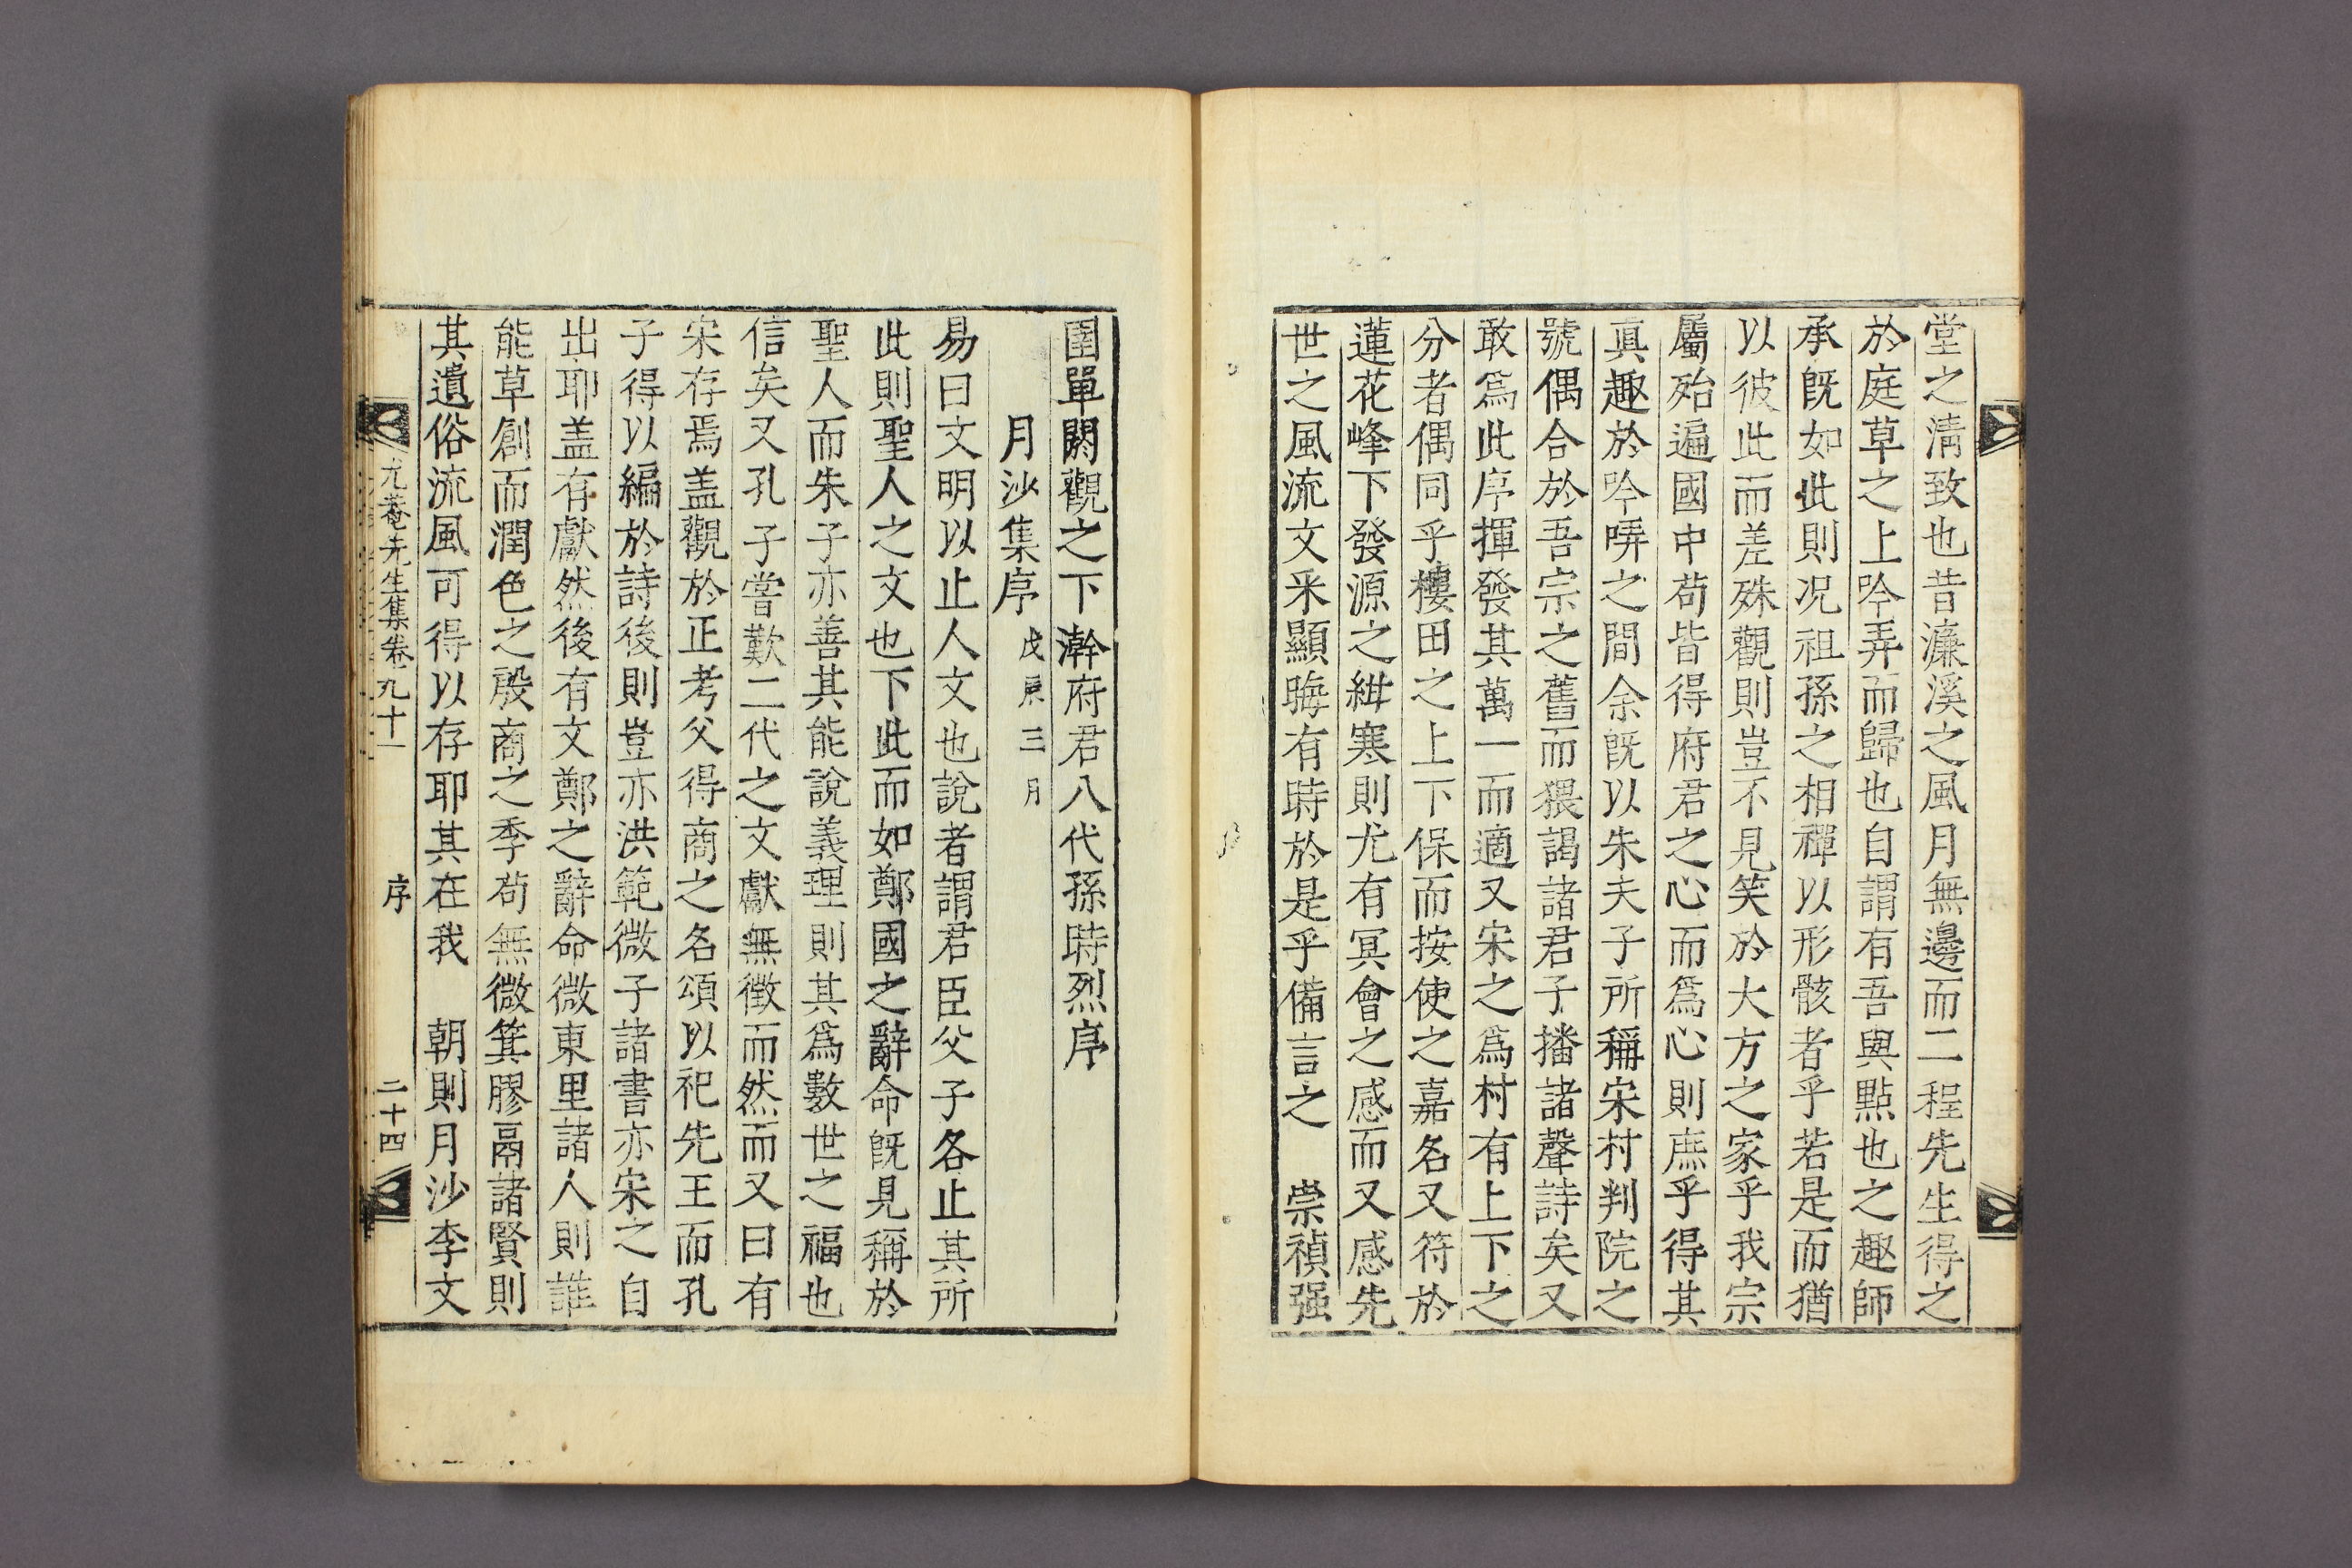 堂之淸致也昔濂溪之風月無邊而二程先生得之
於庭草之上吟弄而歸也自謂有吾與點也之趣師
承旣如此則况祖孫之相禪以形骸者乎若是而猶
以彼此而差殊觀則豈不見笑於大方之家乎我宗
屬殆遍國中苟皆得府君之心而爲心則庶乎得其
眞趣於吟哢之間余旣以朱夫子所稱宋村判院之
號偶合於吾宗之舊而猥謁諸君子播諸聲詩矣又
敢爲此序揮發其萬一而適又宋之爲村有上下之
分者偶同乎樓田之上下保而按使之嘉名又符於
蓮花峰下發源之紺寒則尤有冥會之感而又感先
世之風流文采顯晦有時於是乎備言之 崇禎强
圉單閼觀之下澣府君八代孫時烈序
月沙集序 戊辰三月
易曰文明以止人文也說者謂君臣父子各止其所
此則聖人之文也下此而如鄭國之辭命旣見稱於
聖人而朱子亦善其能說義理則其爲數世之福也
信矣又孔子嘗歎二代之文獻無徵而然而又曰有
宋存焉盖觀於正考父得商之名頌以祀先王而孔
子得以編於詩後則豈亦洪範微子諸書亦宋之自
出耶盖有獻然後有文鄭之辭命微東里諸人則誰
能草創而潤色之殷商之季苟無微箕膠鬲諸賢則
其遺俗流風可得以存耶其在我 朝則月沙李文
尤菴先生集卷九十一 序 二十四